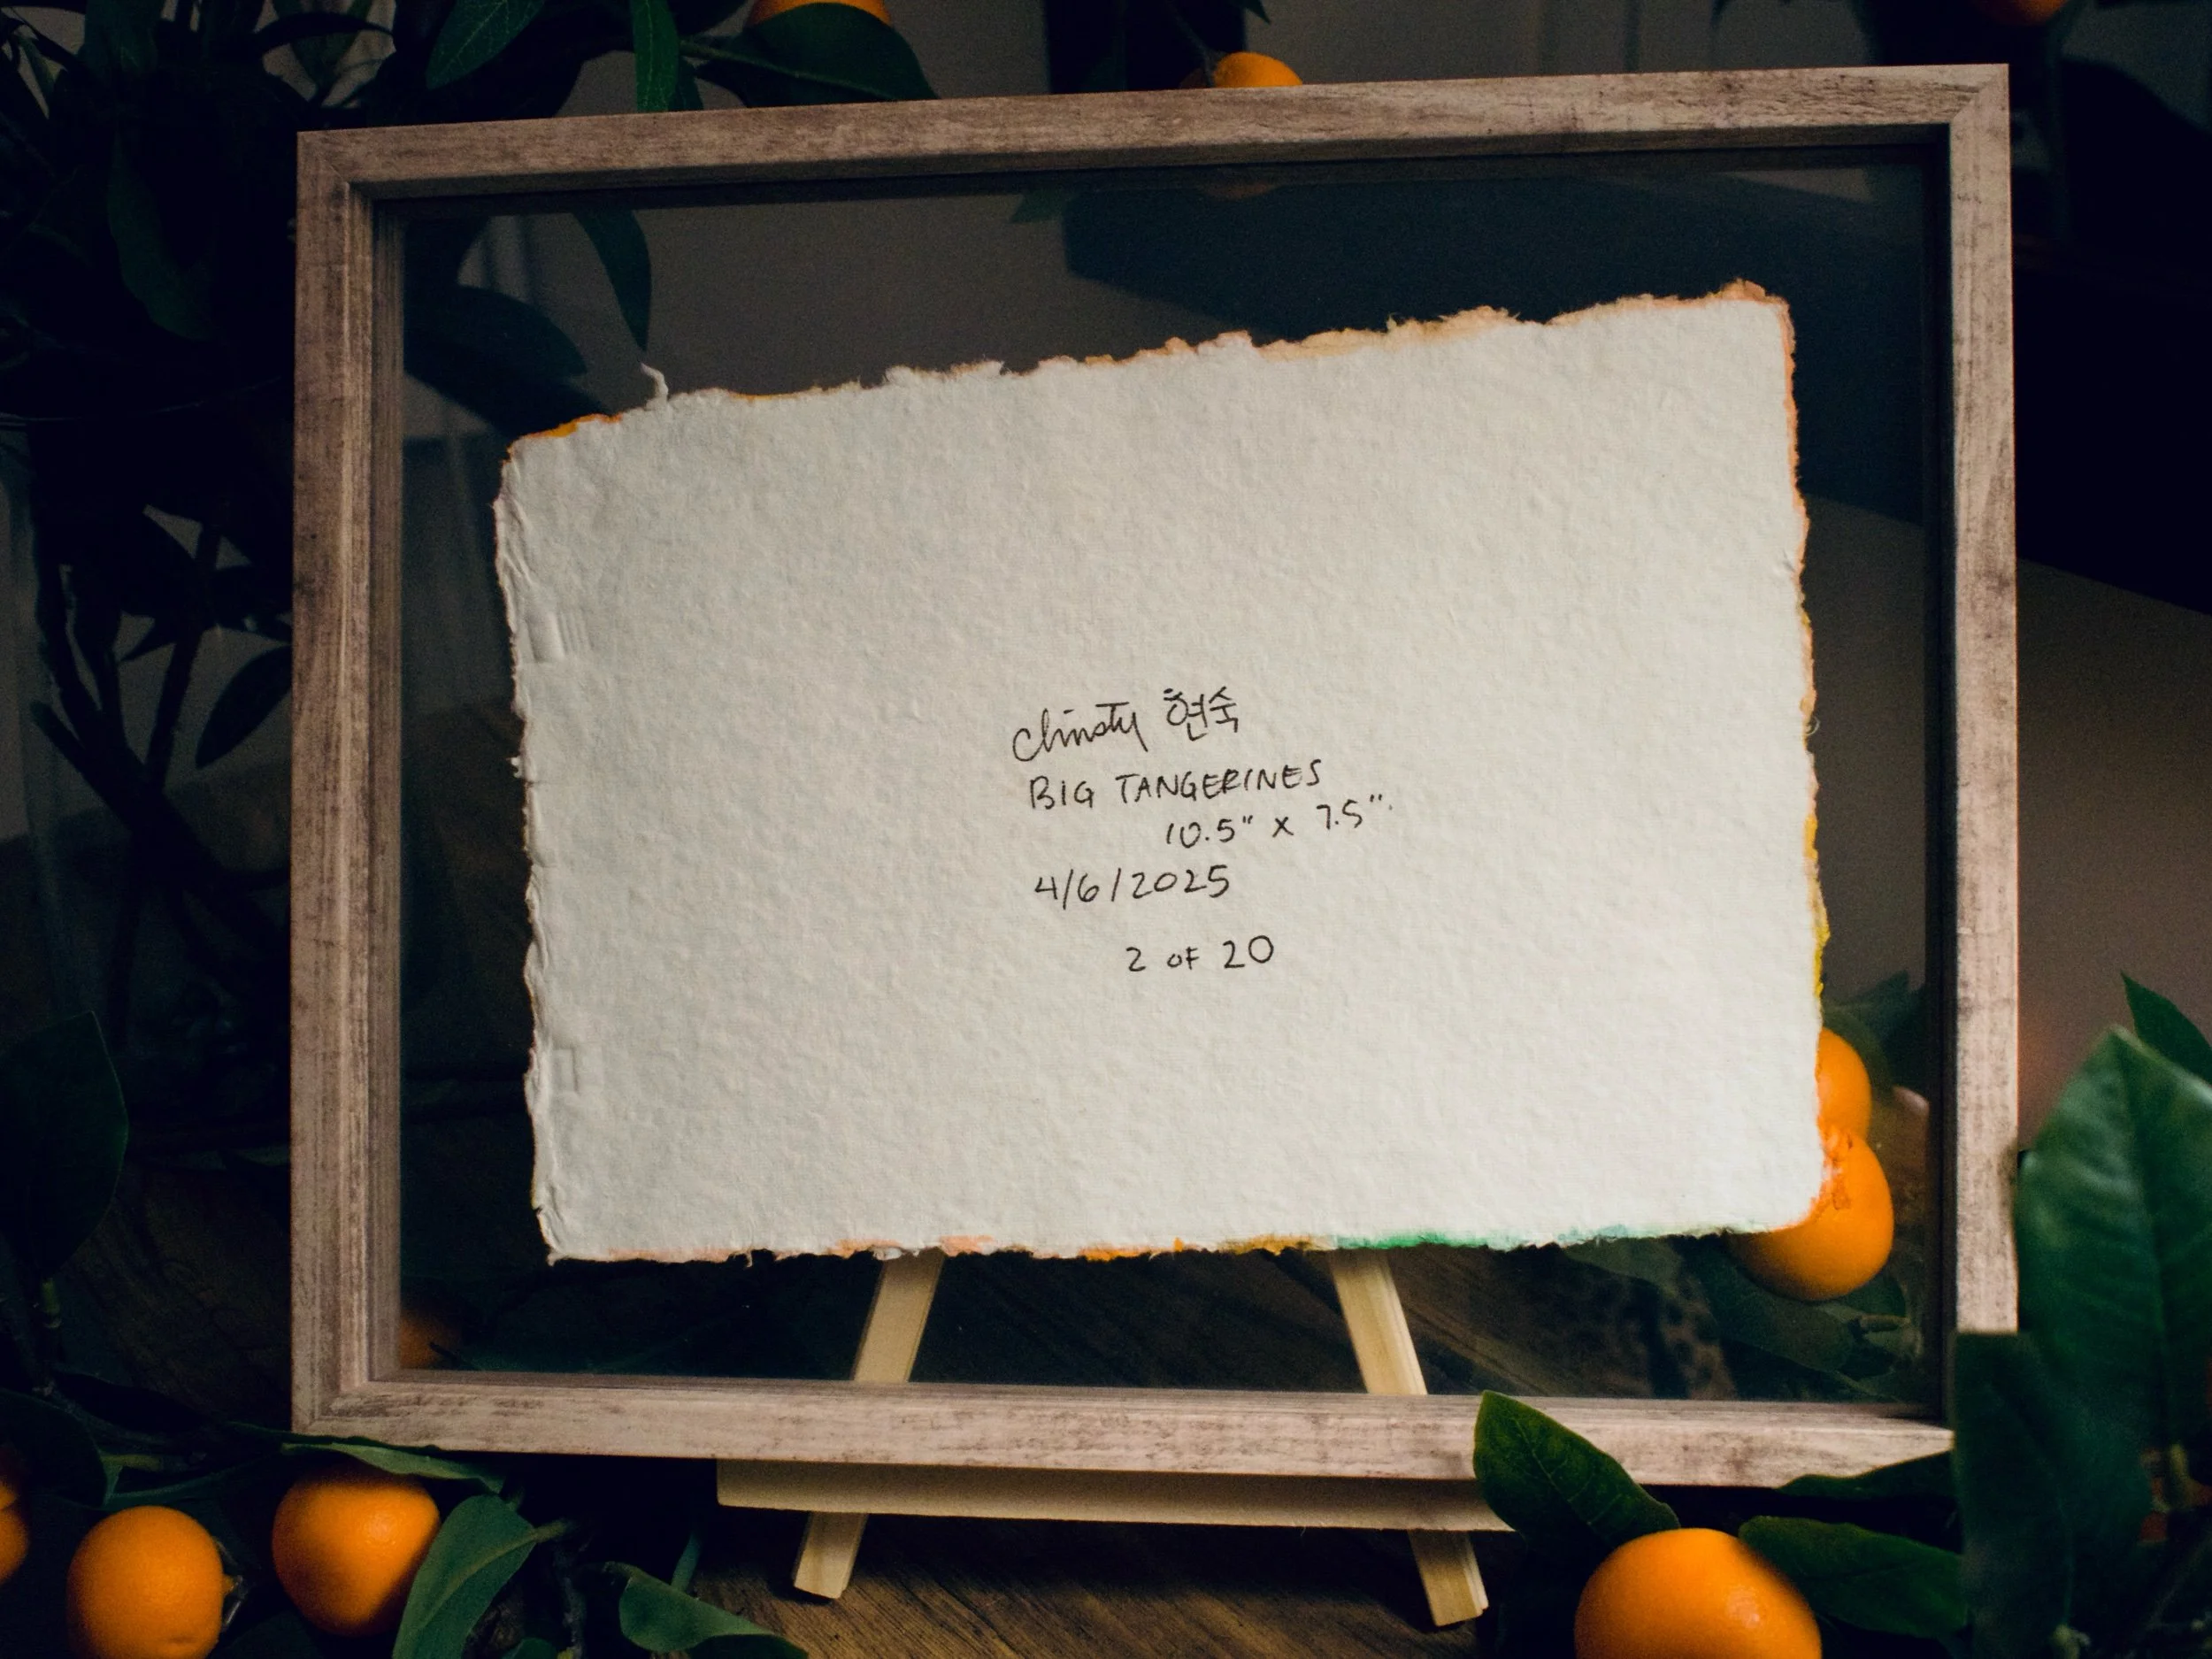 Christy 현숙
BIG TANGERINES
10.5" x 7.5"
4/6/2025
2 OF 20